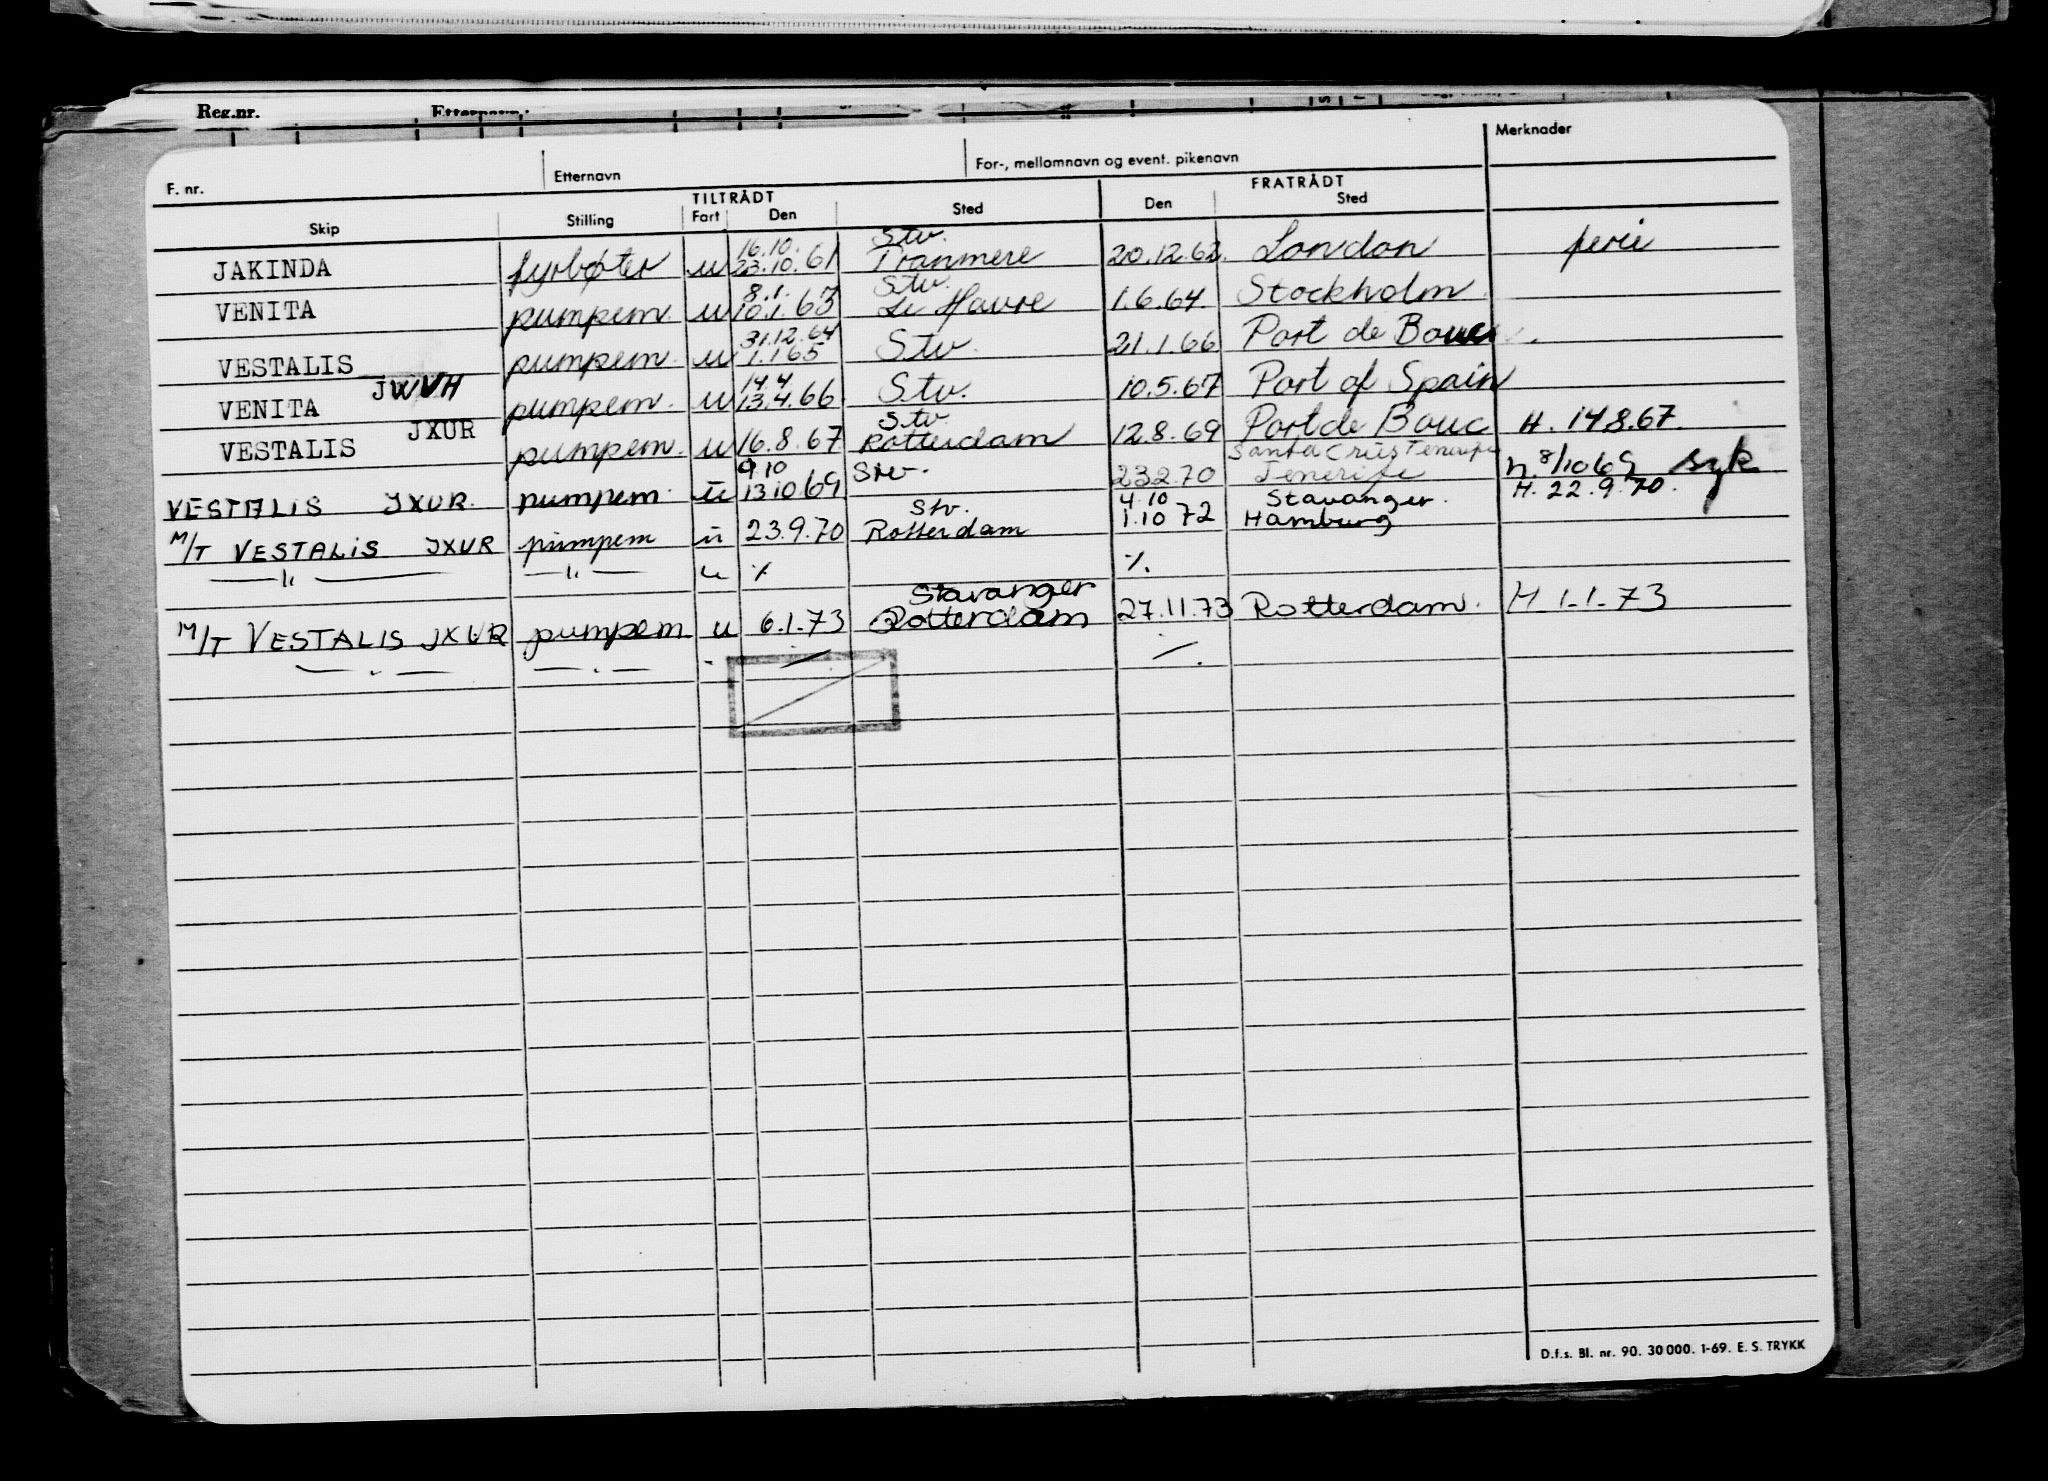 Reg.nr. Etternavn:
F. nr. Etternavn For-, mellomnavn og event. pikenavn Merknader
TILTRÅDT FRATRÅDT
Skip Stilling Fart Den Sted Den Sted
16.10. Stv.
JAKINDA fyrbøter u 23.10.61 Tranmere 20.12.62. London ferie
8.1. Stv.
VENITA pumpem u 10.1.63 Le Havre 1.6.64. Stockholm
31.12.64
VESTALIS pumpem. u 1.1.65 Stv. 21.1.66 Port de Bouc
14.4
VENITA JWVH pumpem. u 13.4.66 Stv. 10.5.67 Port of Spain
Stv.
VESTALIS JXUR pumpem. u 16.8.67 Rotterdam 12.8.69 Port de Bouc H. 14.8.67.
9.10 Santa Crus Tenerife
VESTALIS JXUR. pumpem. u 13.10.69 Stv. 23.2.70 Tenerife h. 8/10 69 syk
Stv. 4.10 Stavanger. H. 22.9.70.
M/T VESTALIS JXUR pumpem u 23.9.70 Rotterdam 1.10 72 Hamburg
—"— —"— u ٪ ٪.
Stavanger
M/T VESTALIS JXUR pumpem u 6.1.73 Rotterdam 27.11.73 Rotterdam. H 1.1.73
D.f.s. Bl. nr. 90. 30 000. 1-69. E. S. TRYKK